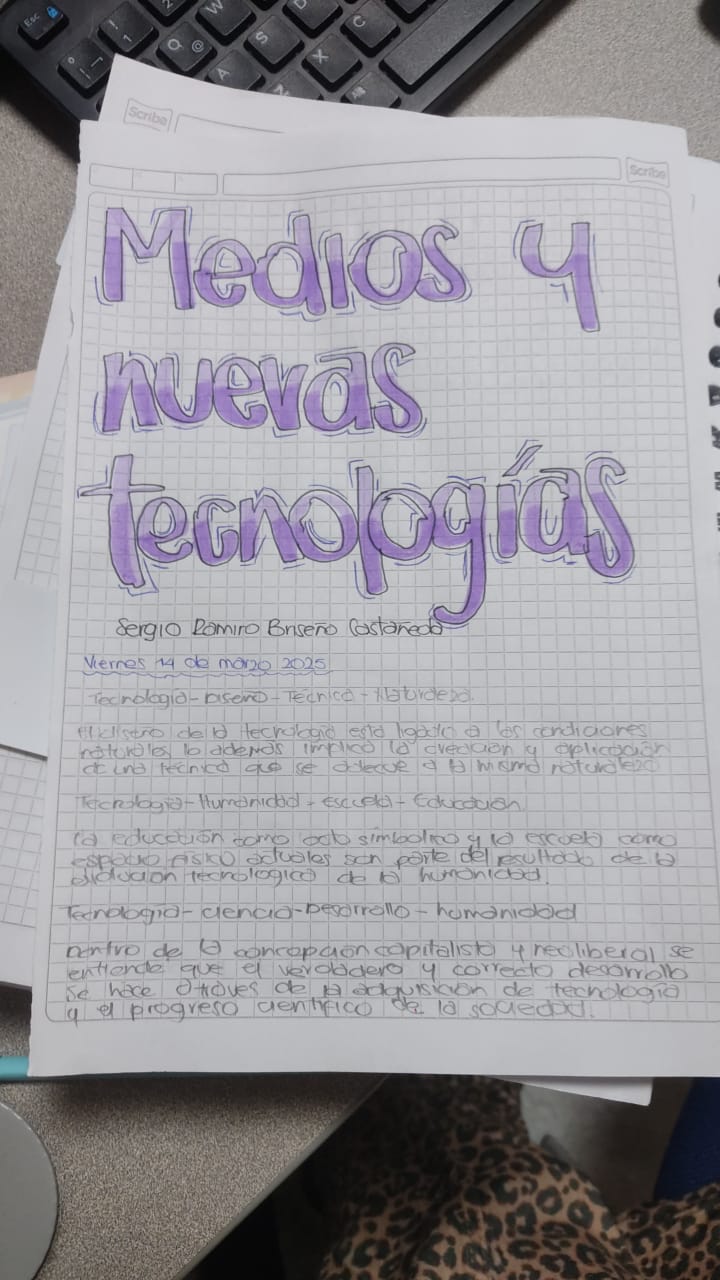 Esc
Q @
W
A
S
D
X
C
Z
Alt
Scribe
Scribe
Medios y
nuevas
tecnologías
Sergio Ramiro Briseño Castañeda
Viernes 14 de marzo 2025
Tecnología-Diseño-Técnica-Naturaleza.
El diseño de la tecnología está ligado a las condiciones
naturales lo además implica la creación y aplicación
de una técnica que se adecue a la misma naturaleza
Tecnología-Humanidad-escuela-Educación.
La educación como acto simbólico y la escuela como
espacio físico actuales son parte del resultado de la
evolución tecnológica de la humanidad.
Tecnología-ciencia-Desarrollo-humanidad
Dentro de la concepción capitalista y neoliberal se
entiende que el verdadero y correcto desarrollo
se hace a través de la adquisición de tecnología
y el progreso científico de la sociedad.